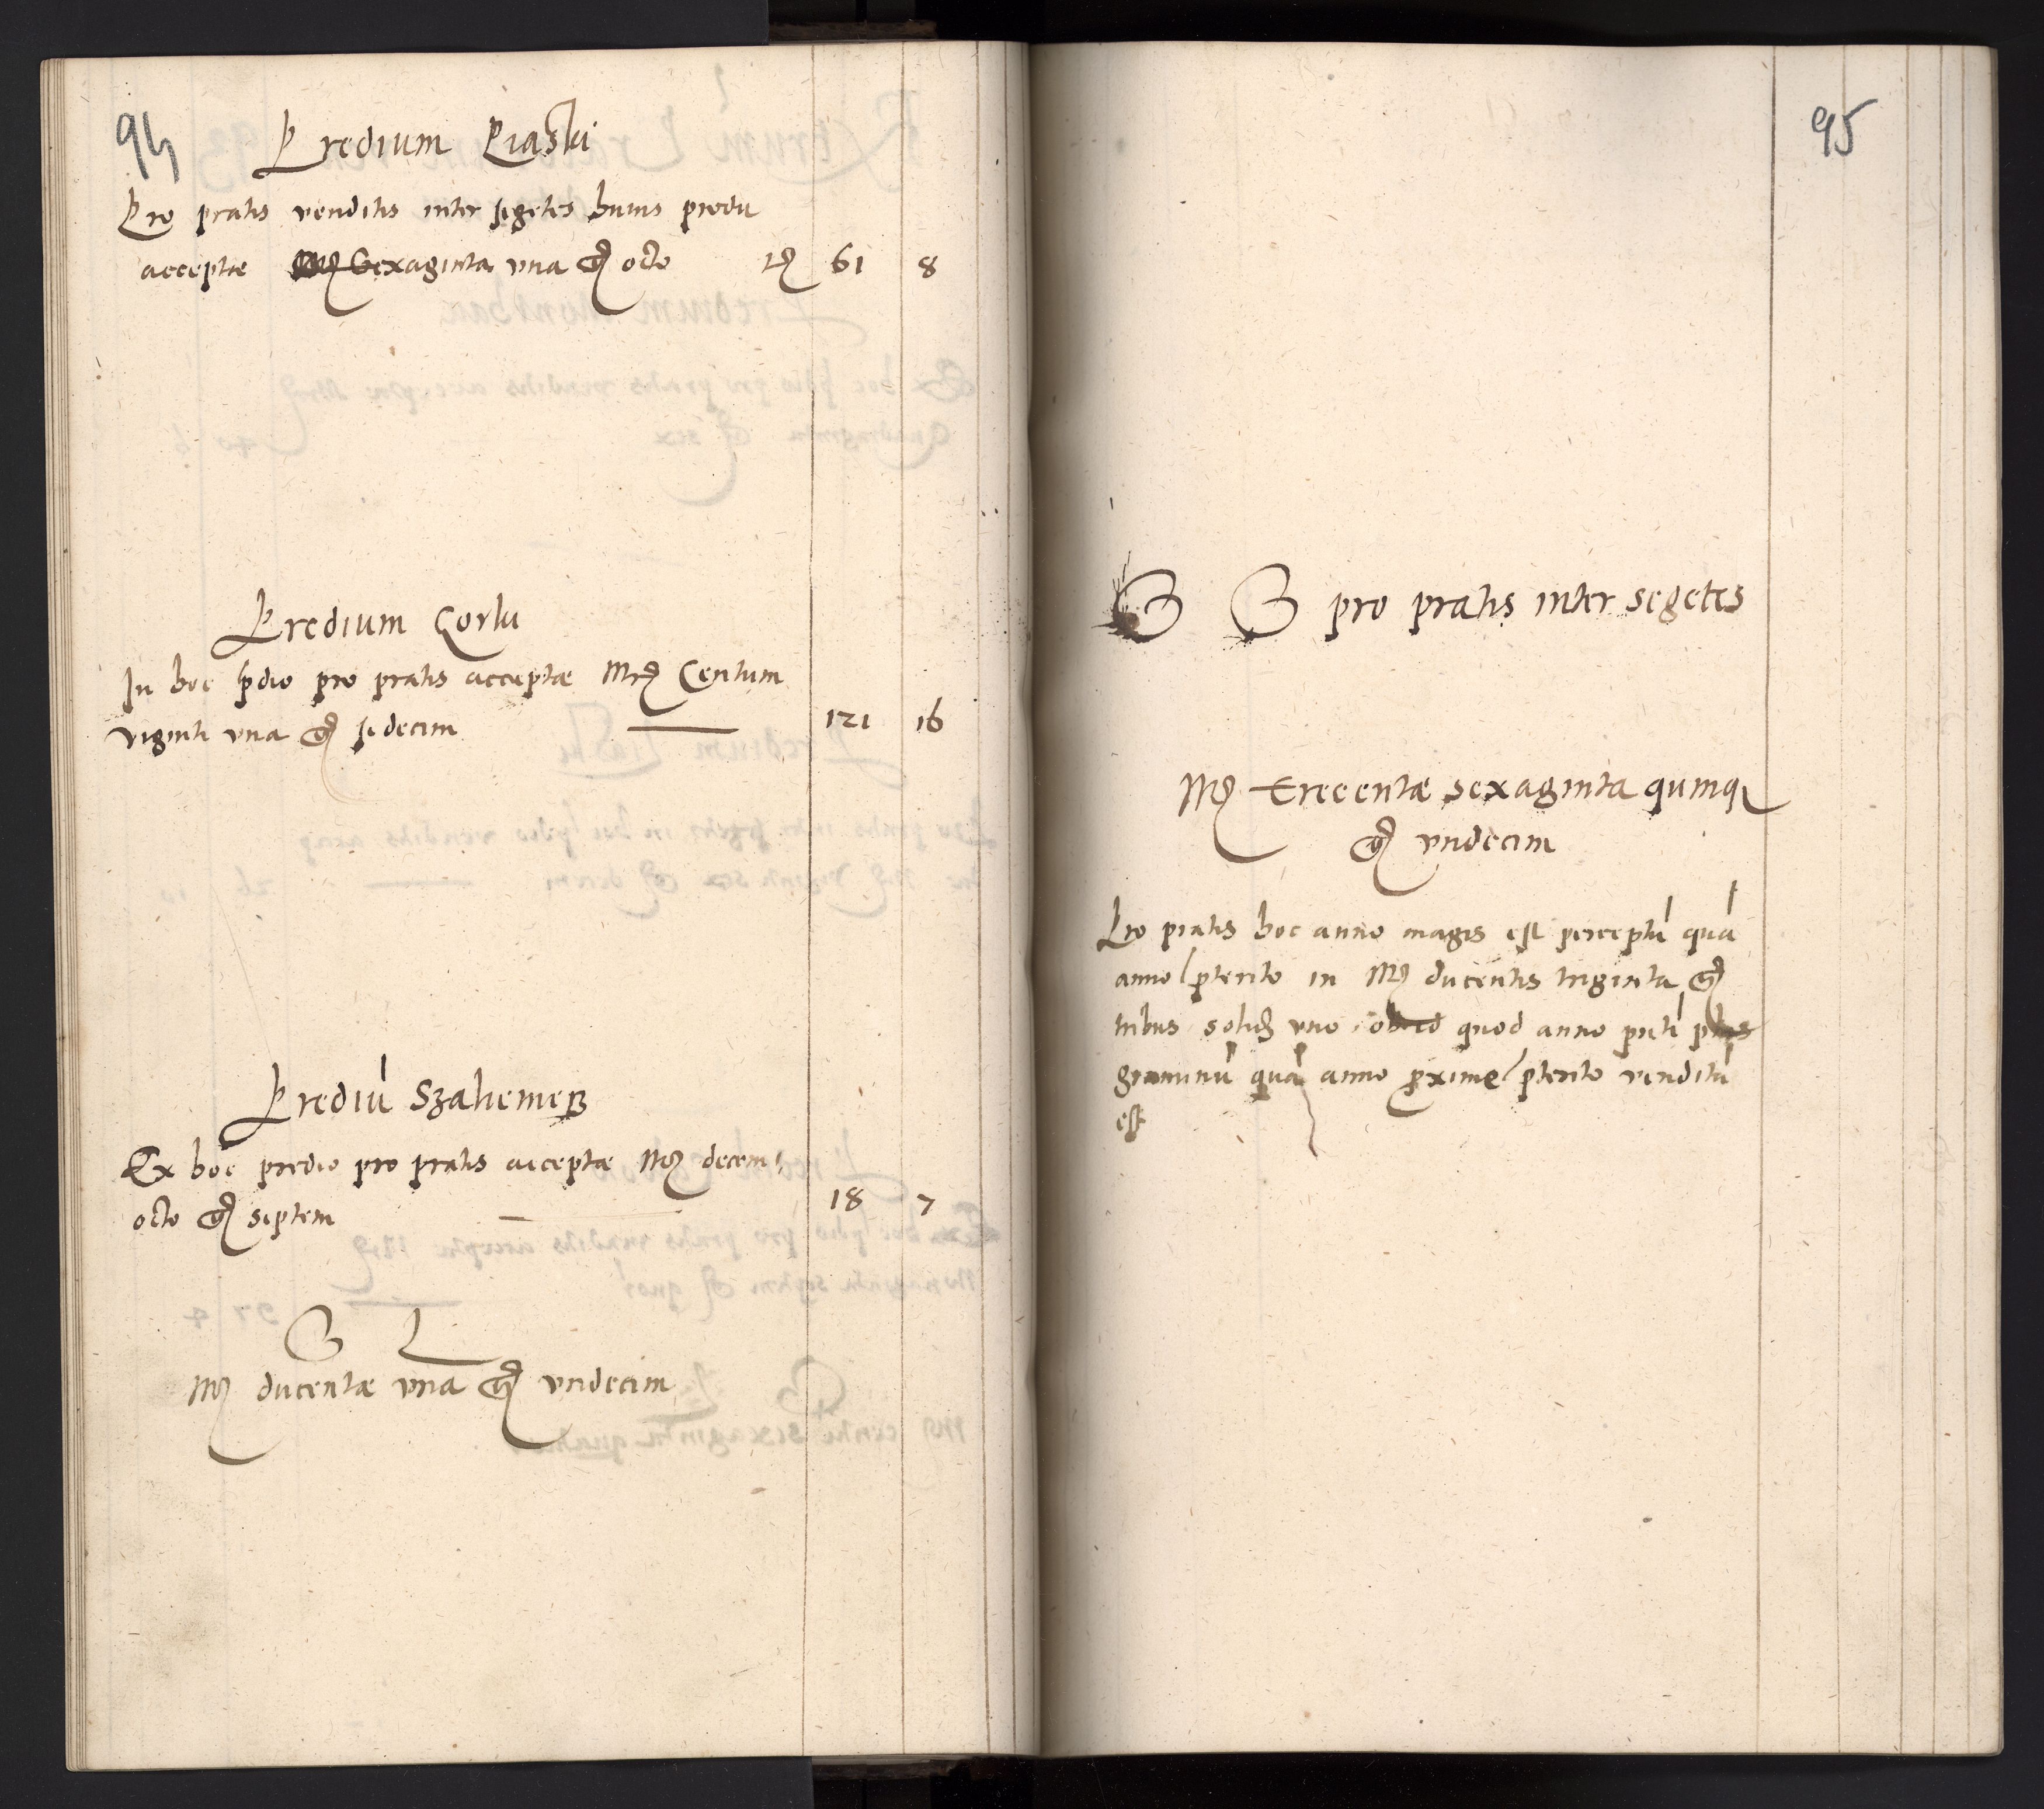 94
Predium Piaski
Pro pratis venditis inter segetes huius predii
acceptæ Sexaginta una g octo 61 8
Predium Gorki
In hoc pdio pro pratis acceptæ Mr Centum
viginti una g sedecim 121 16
Prediu Szaliemeß
Ex hoc predio pro pratis acceptæ M decem
octo g septem 18 7
M ducentæ vna g vndecim
95
S S pro pratis inter segetes
M Trecentæ sexaginta quinq
g vndecim
Pro pratis hoc anno magis est perceptu qua
anno pterito in M ducentis triginta g
tribus solid vno quod anno pnti
graminu qua anno proxime pterito venditu
est